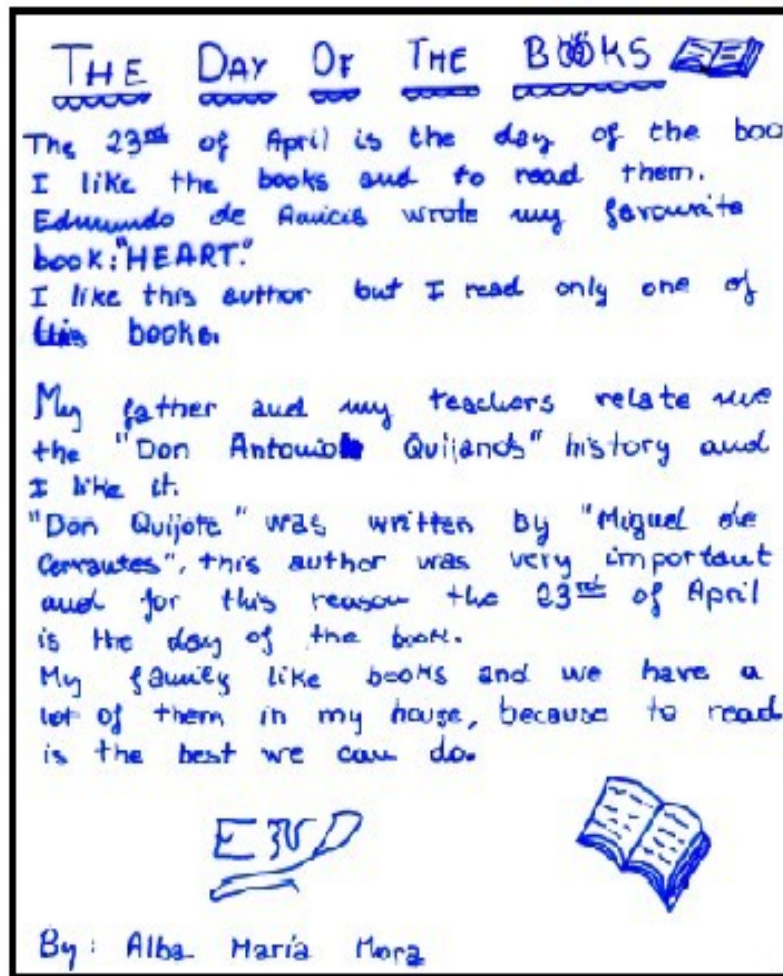 THE DAY OF THE BOOKS
The 23rd of April is the day of the boo
I like the books and to read them.
Edmundo de Amicis wrote my favourite
book: "HEART."
I like this author but I read only one of
this books.
My father and my teachers relate me
the "Don Antonio Quijano's" history and
I like it.
"Don Quijote" was written by "Miguel de
Cervantes", this author was very important
and for this reason the 23rd of April
is the day of the book.
My family like books and we have a
lot of them in my house, because to read
is the best we can do.
END
By: Alba María Mora